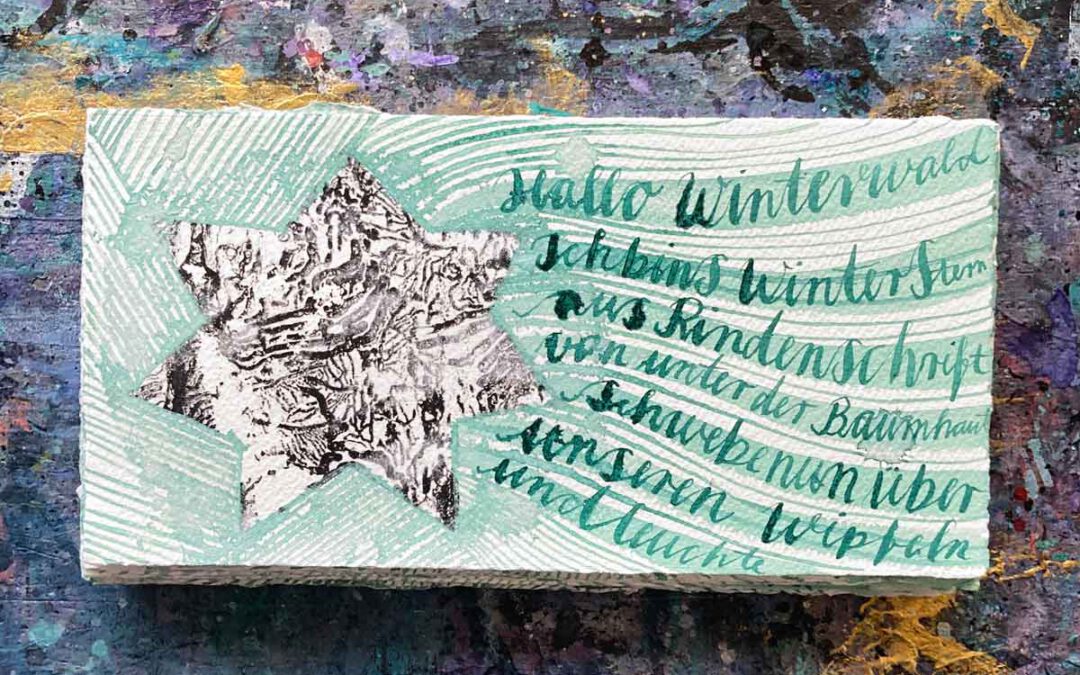 Hallo Winterwald
Ich bins Winterstern
aus Rindenschrift
von unter der Baumhaut
Schwebe nun über
unseren Wipfeln
und leuchte